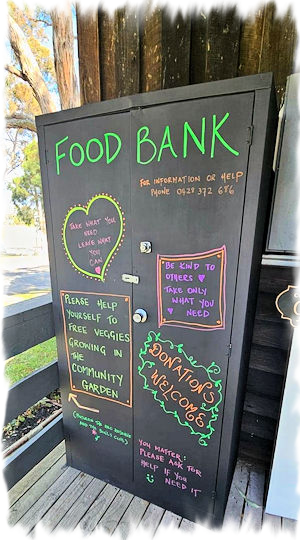 FOOD BANK
FOR INFORMATION OR HELP
PHONE 0428 372 686
TAKE WHAT YOU
NEED
LEAVE WHAT
YOU
CAN
BE KIND TO
OTHERS
TAKE ONLY
WHAT YOU
NEED
PLEASE HELP
YOURSELF TO
FREE VEGGIES
GROWING IN
THE
COMMUNITY
GARDEN
DONATIONS
WELCOME
YOU MATTER:
PLEASE ASK FOR
HELP IF YOU
NEED IT
AND THE